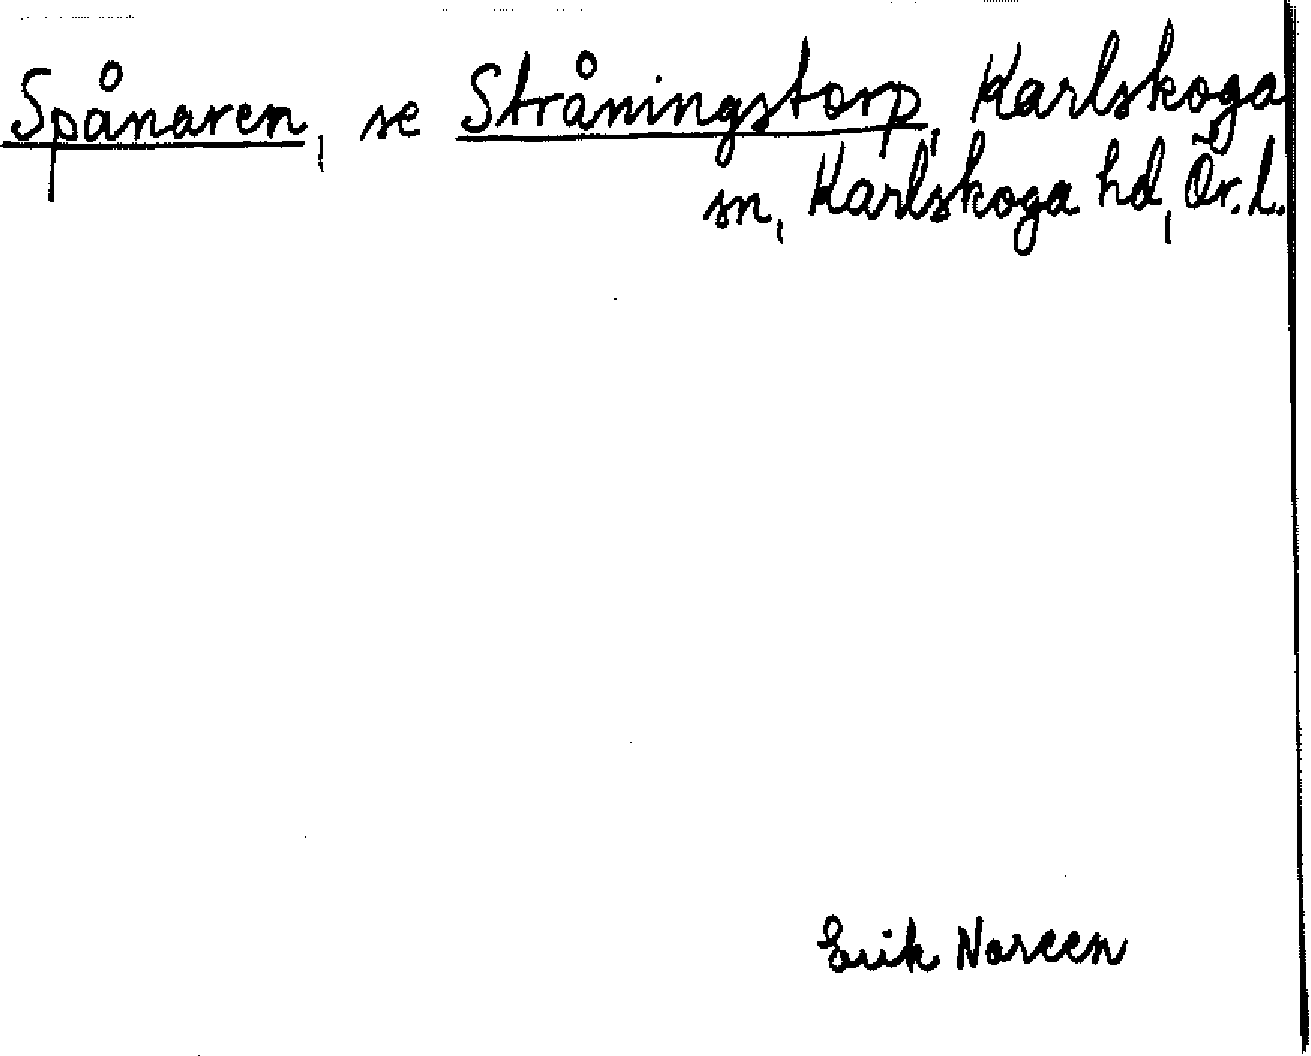 Spånaren, se Stråningstorp, Karlskoga
sn, Karlskoga hd, Ör. L.
Erik Noreen